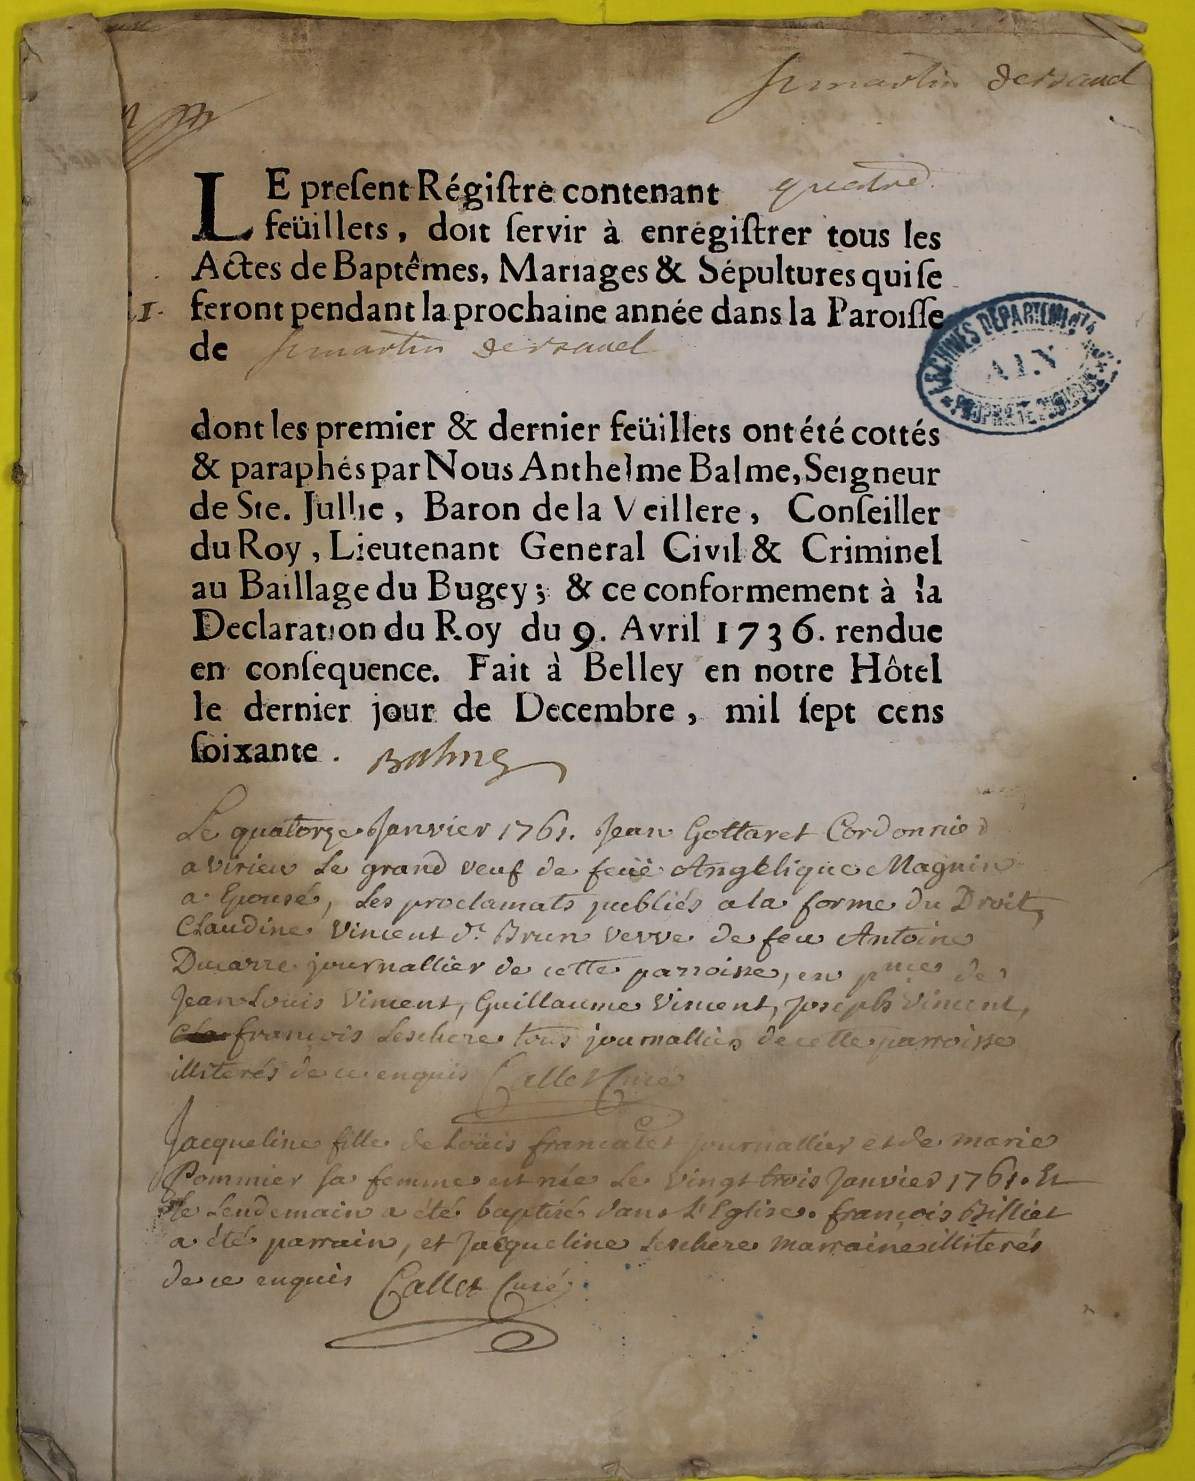 St martin de
LE preſent Régiſtre contenant quatre
feüillets, doit ſervir à enrégiſtrer tous les
Actes de Baptêmes, Mariages & Sépultures qui ſe
1. feront pendant la prochaine année dans la Paroiſſe
de St martin de
ARCHIVES DÉPARTEMENTALES
AIN
PROPRIÉTÉ PUBLIQUE
dont les premier & dernier feüillets ont été cottés
& paraphés par Nous Anthelme Balme, Seigneur
de Ste. Jullie, Baron de la Veillere, Conſeiller
du Roy, Lieutenant General Civil & Criminel
au Baillage du Bugey; & ce conformement à la
Declaration du Roy du 9. Avril 1736. rendue
en conſequence. Fait à Belley en notre Hôtel
le dernier jour de Decembre, mil ſept cens
ſoixante. Balme
Le quatorze Janvier 1761. Jean Gottaret Cordonnier
a virieu Le grand veuf de feuë Angelique Magnin
a Epousé, Les proclamats publiés a la forme du Droit,
Claudine Vincent d. Brun vevve de feu Antoine
Ducarre journallier de cette parroisse, en pnces de
Jean Louis Vincent, Guillaume Vincent, Joseph Vincent,
françois Leschere tous journalliers de cette parroisse
illiterés de ce enquis Callet Curé
Jacqueline fille de Loüis francalet journallier et de marie
Pommier sa femme est née Le vingt trois Janvier 1761. Et
le Lendemain a été baptisé dans L'Eglise. françois Billiet
a été parrain, et Jacqueline Leschere marraine illiterés
de ce enquis Callet Curé